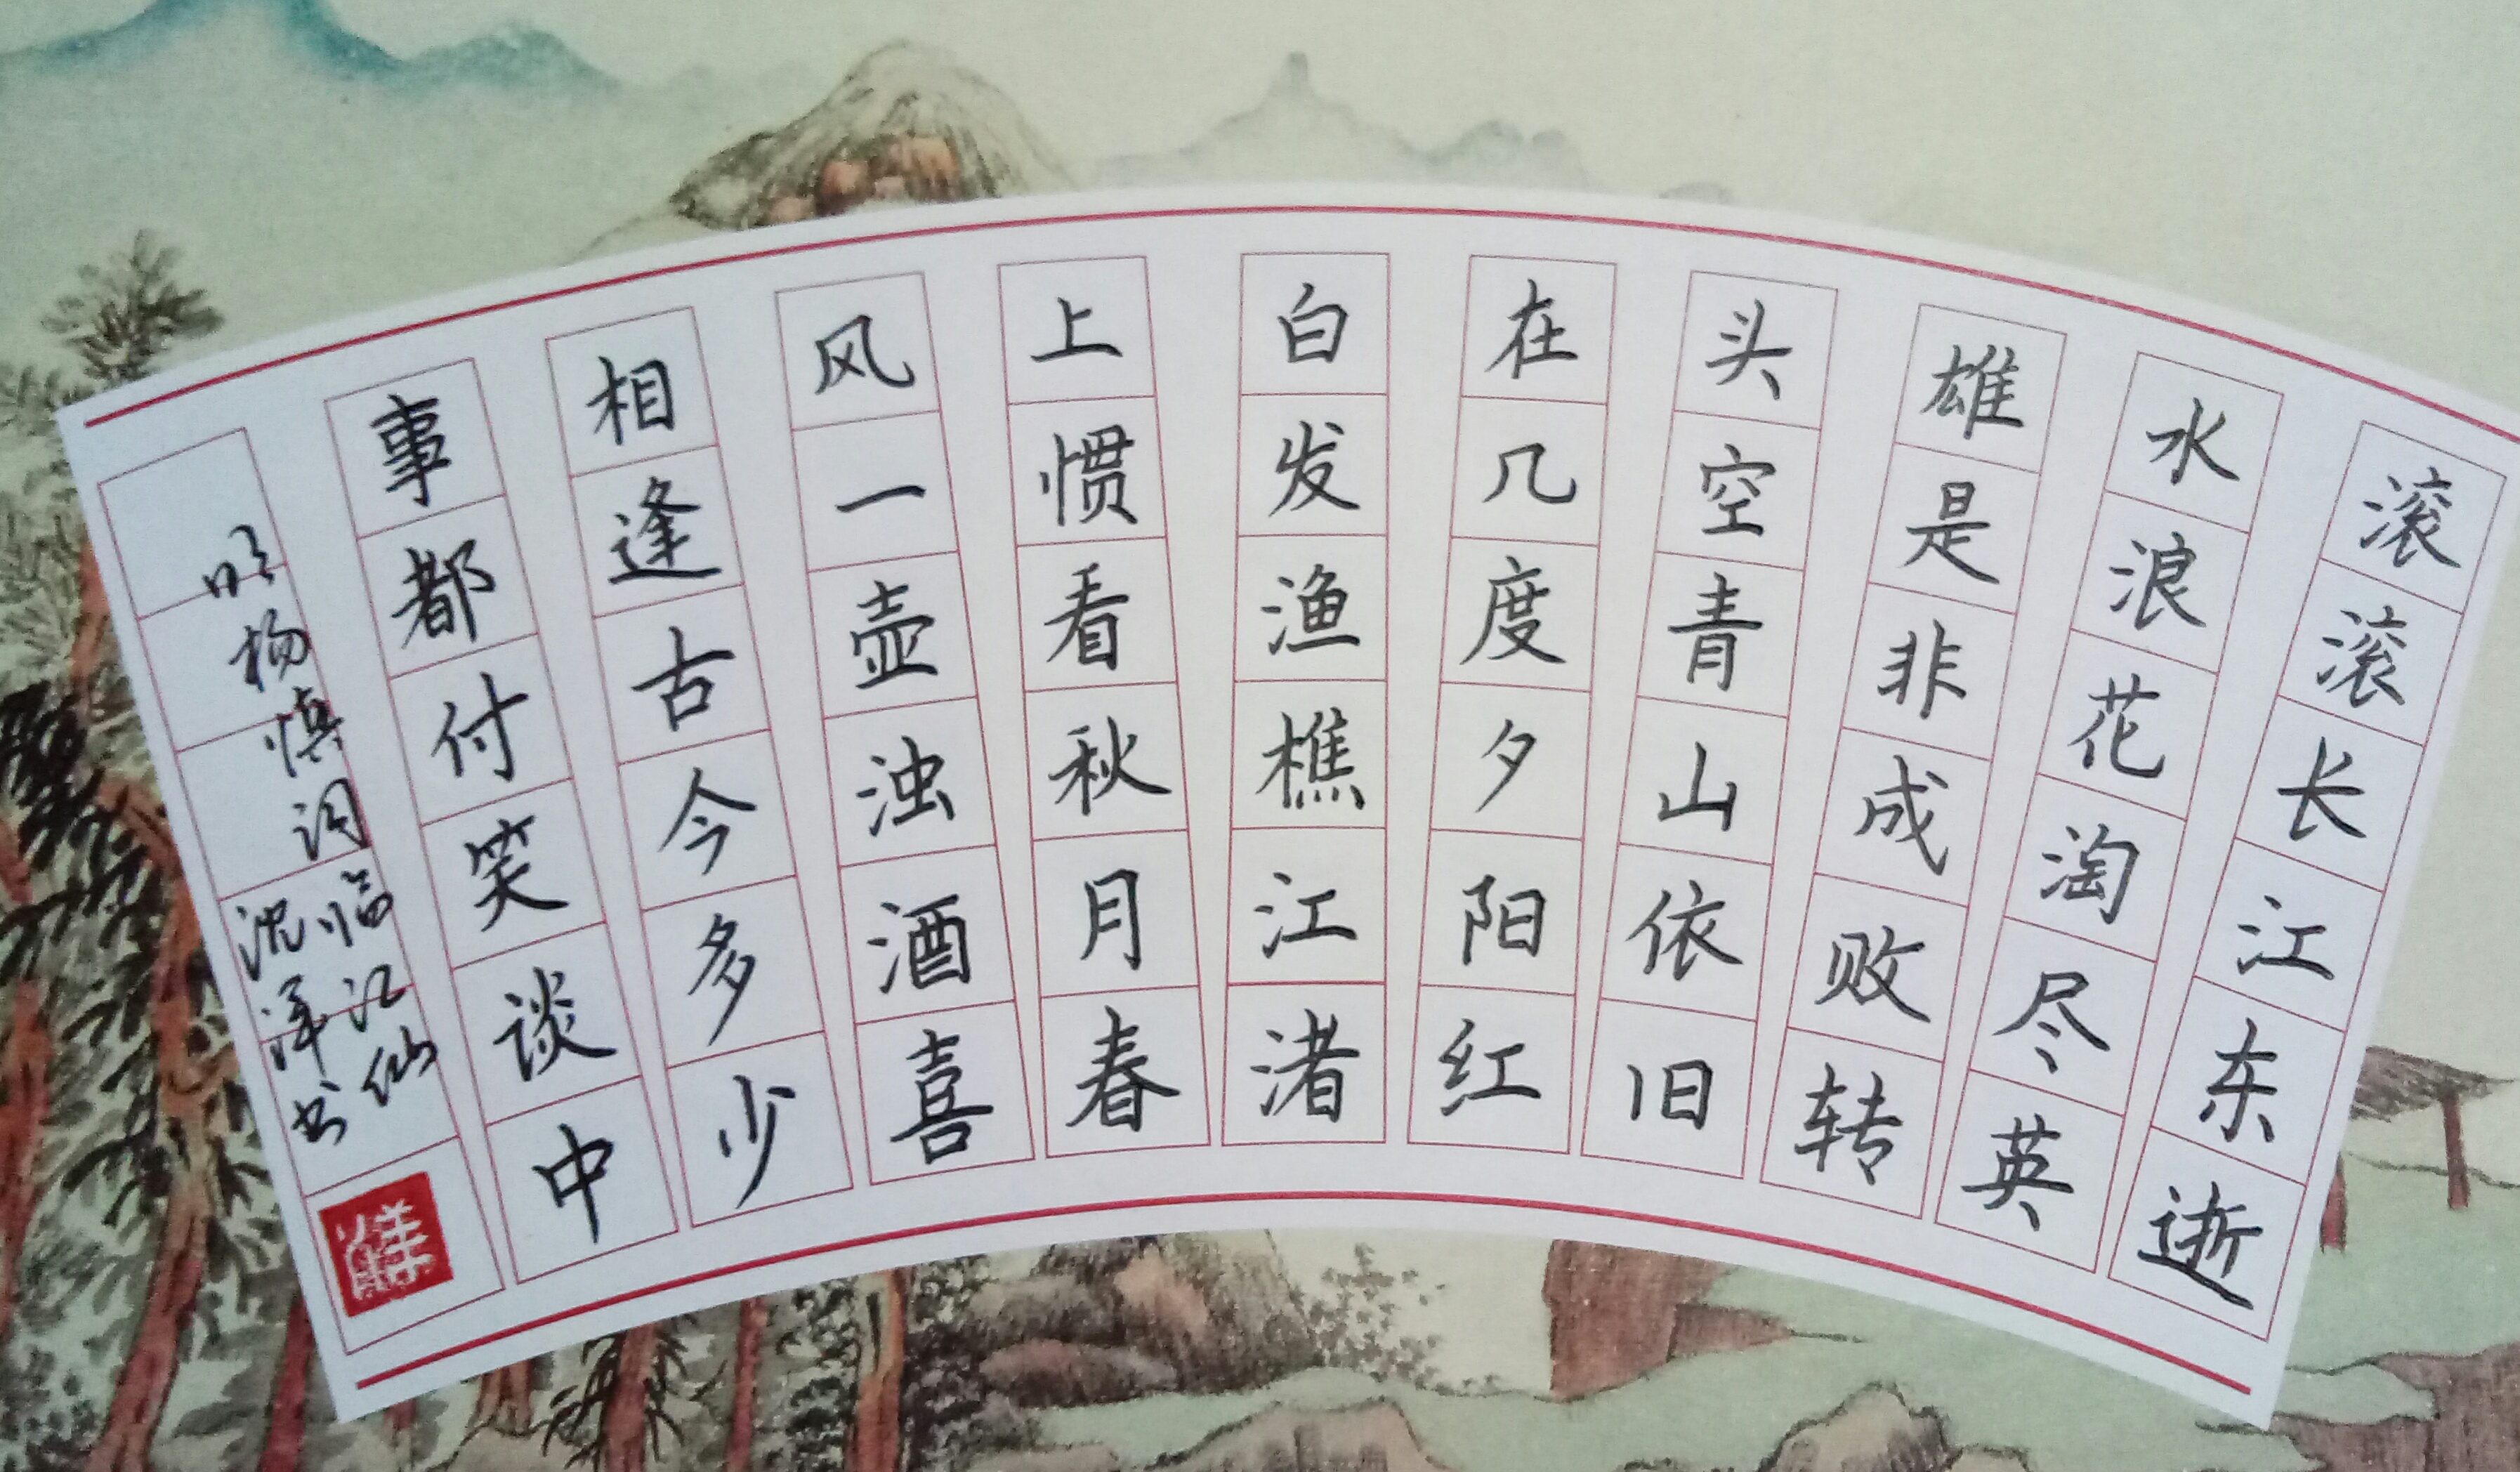 滚滚长江东逝
水浪花淘尽英
雄是非成败转
头空青山依旧
在几度夕阳红
白发渔樵江渚
上惯看秋月春
风一壶浊酒喜
相逢古今多少
事都付笑谈中
明杨慎词临江仙
沈洋书